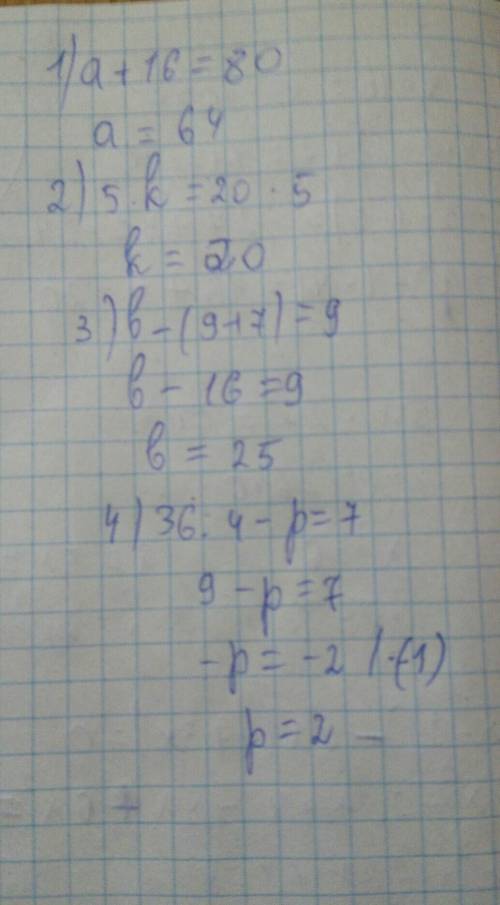 1) a + 16 = 80
a = 64
2) 5 · k = 20 · 5
k = 20
3) в - (9+7) = 9
в - 16 = 9
в = 25
4) 36 : 4 - p = 7
9 - p = 7
-p = -2 | ·(-1)
p = 2